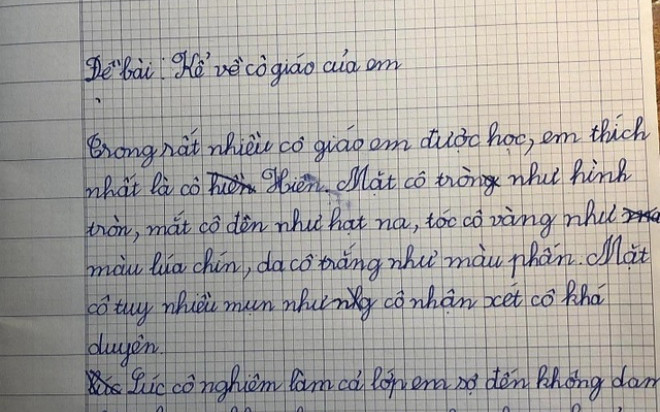 Đề bài: Kể về cô giáo của em
Trong rất nhiều cô giáo em được học, em thích
nhất là cô hiền Hiền. Mặt cô tròng như hình
tròn, mắt cô đên như hạt na, tóc cô vàng như
màu lúa chín, da cô trắng như màu phấn. Mặt
cô tuy nhiều mụn như ng cô nhận xét cô khá
duyên.
Lúc cô nghiêm làm cả lớp em sợ đến không dam